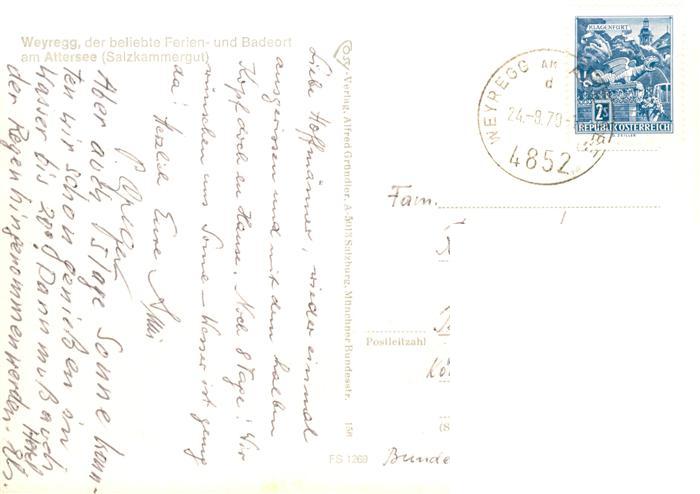 Weyregg, der beliebte Ferien- und Badeort
am Attersee (Salzkammergut)
Liebe Hoffmänner, wieder einmal
ausgerissen und mit dem halben
Kopf doch zu Hause. Noch 8 Tage! Wir
wünschen uns Sonne - Wasser ist genug
da! Herzlich Eure
Aber auch 5 Tage Sonne konn-
ten wir schon genießen im
Wasser bis 20°. Dann muß auch
der Regen hingenommen werden.
Verlag Alfred Gründler, A-5013 Salzburg, Münchner Bundesstr. 156
FS 1269
WEYREGG AM
d
24.-8.70-
4852
KLAGENFURT
2S
REPUBLIK ÖSTERREICH
Fam.
Postleitzahl
Bunde